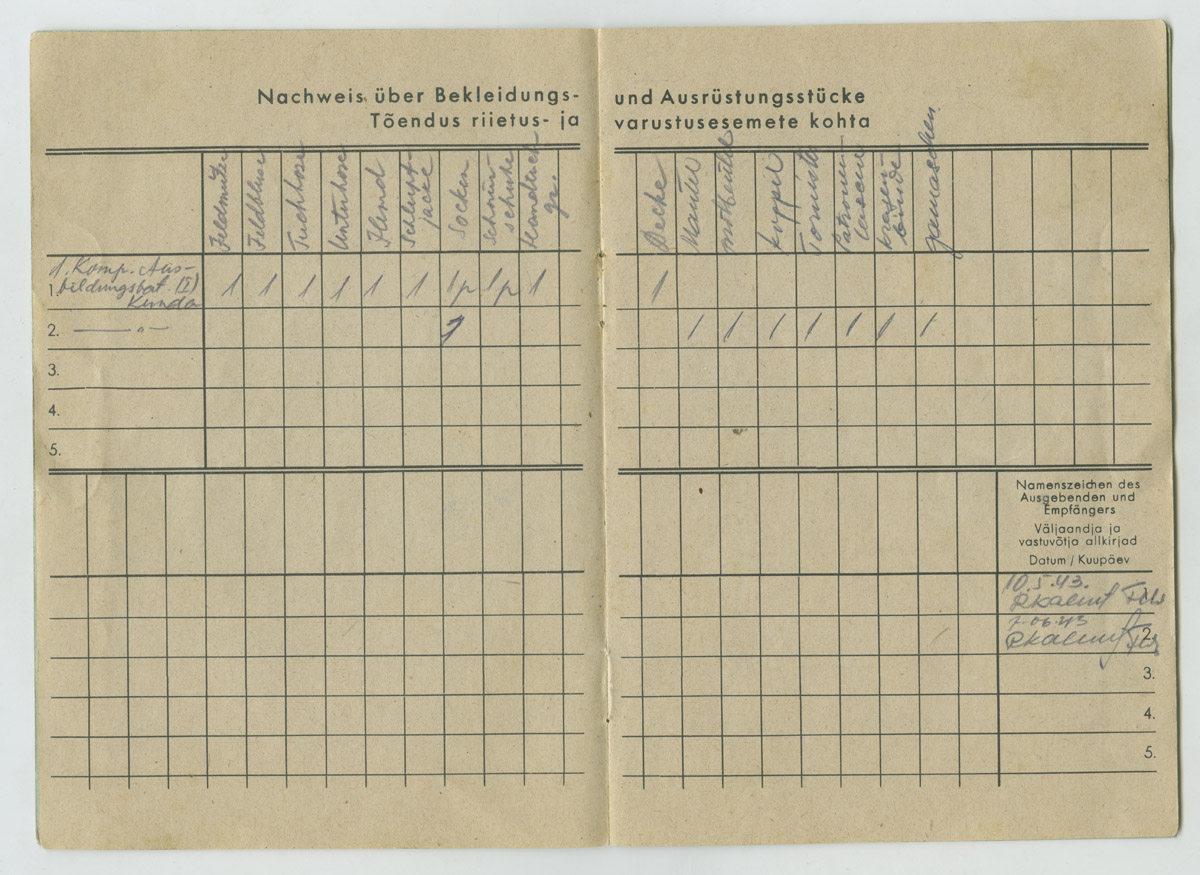 Nachweis über Bekleidungs- und Ausrüstungsstücke
Tõendus riietus- ja varustusesemete kohta
Feldmütze
Feldbluse
Tuchhose
Unterhose
Hemd
Schlupf-
jacke
Socken
Schnür
schuhe
Handtuch
gr.
Decke
Mantel
koppel
Tornister
Patronen
tasche
kragen
binde
gamaschen
1. Komp. Aus-
1. bildungsbat. (I) 1 1 1 1 1 1 1p 1p 1 1
Kunda
2. — " — 1 1 1 1 1 1 1 1
3.
4.
5.
Namenszeichen des
Ausgebenden und
Empfängers
Väljaandja ja
vastuvõtja allkirjad
Datum / Kuupäev
10.5.43.
7.06.43
2.
3.
4.
5.